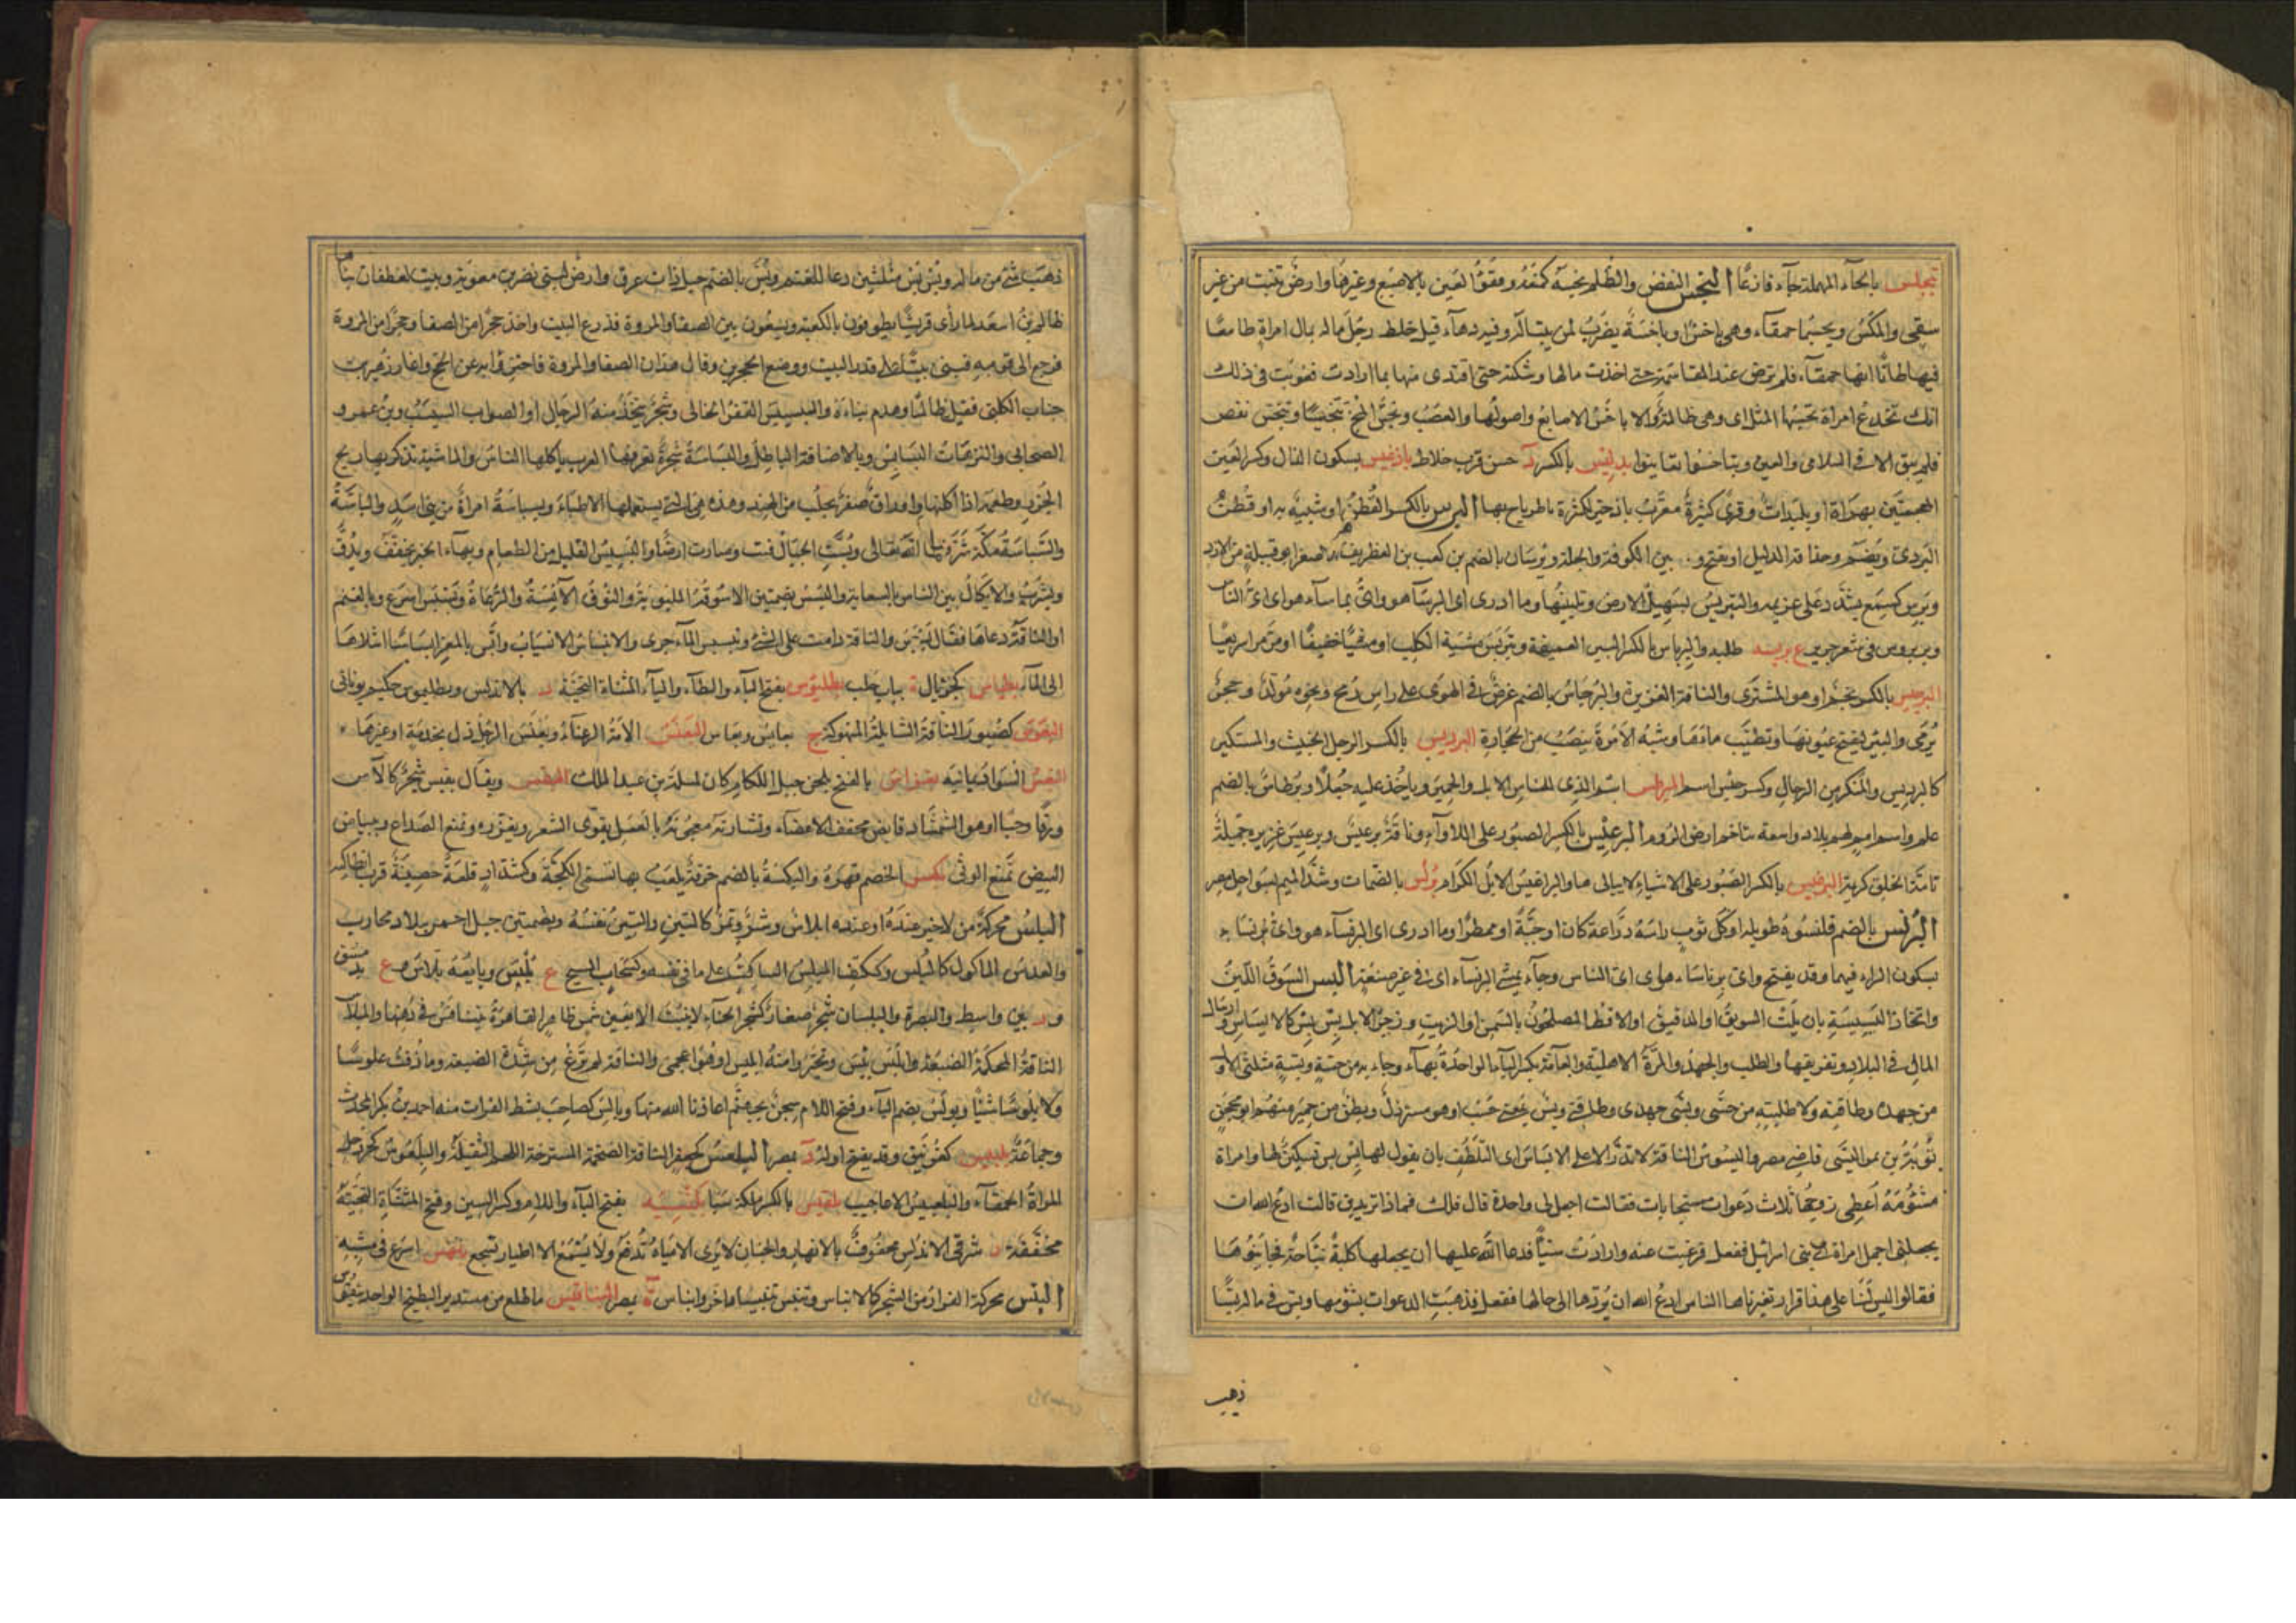 تبحلس بالحاء المهملة جاء فارغا البخس النقص والظلم بخسه كمنعه وفقؤ العين بالاصبع وغيرها وارض تنبت من غير
سقى والمكس وتحسبها حمقاء وهى باخس او باخسة يضرب لمن يتباله وفيه دهاء قيل خلط رجل ماله بمال امراة طامعا
فيها ظانا انها حمقاء فلم ترض عند المقاسمة حتى اخذت مالها وشكته حتى افتدى منها بما ارادت فعوتب فى ذلك
انك تخدع امراة فقال تحسبها المثل اى وهى ظالمة والاباخس الاصابع واصولها والعصب وبخس المخ تبخيسا وتبخس نقص
فلم يبق الا فى السلامى والعين وتباخسوا تغابنوا بدليس بالكسر د حسن قرب خلاط باذغيس بسكون الذال وكسر الغين
المعجمتين بهراة او بليدات وقرى كثيرة معرب باذخيز لكثرة الرياح بها البرس بالكسر القطن او شبيه به او قطن
البردى ويضم وحذاقة الدليل او يفتح و ة بين الكوفة والحلة وبرسان بالضم بن كعب بن الغطريف الاصغر ابو قبيلة من الازد
وبرس كسمع تشدد على غريمه والتبريس تسهيل الارض وتليينها وما ادرى اى البرساء هو واى برساء هو اى اى الناس
وبربروس فى شعر جرير ع بربسه طلبه والبرباس بالكسر البئر العميقة وتبربس مشى مشية الكلب او مشيا خفيفا او مر مرا سريعا
البرجيس بالكسر نجم او هو المشترى والناقة الغزيرة والبرجاس بالضم غرض فى الهوى على راس رمح ونحوه مولد وحجر
يرمى فى البئر ليفتح عيونها وتطيب ماؤها وشبه الامرة ينصب من الحجارة البرديس بالكسر الرجل الخبيث والمستكبر
كالبرديس والمنكر من الرجال وكسر حبيش اسم المبرطس الذى يكترى للناس الابل والحمير وياخذ عليه جعلا وبرطاس بالضم
علم واسم امم لهم بلاد واسعة تتاخم ارض الروم البرعيس بالكسر الصبور على اللاواء وناقة برعيس وبرعيس غزيرة جميلة
تامة الخلق كريمة البرغيس بالكسر الصبور على الاشياء لا يباليها والبراغيس الابل الكرام برلس بالضمات وشد اللام بسواحل مصر
البرنس بالضم قلنسوة طويلة او كل ثوب راسه منه دراعة كان او جبة او ممطرا وما ادرى اى البرنساء هو واى برنساء
بسكون الراء فيهما وقد يفتح واى برناساء هو اى اى الناس وجاء يمشى البرنساء اى فى غير صنعة البس السوق اللين
واتخاذ البسيسة بان يلت السويق او الدقيق او الاقط المطحون بالسمن او الزيت وزجر للابل ببس بس كالابساس وارسال
المال فى البلاد وتفريقها والطلب والجهد والهرة الاهلية والعامة بكسر الباء الواحدة بهاء وجاء به من حسه وبسه مثلثى الاول
من جهده وطاقته ولا طلبنه من حسى وبسى جهدى وطاقتى وبس بمعنى حسب او هو مسترذل وبطن من حمير منهم ابو محجن
توبة بن نمر البسى قاضى مصر والبسوس الناقة لا تدر الا على الابساس اى التلطف بان يقول لها بس بس تسكينا لها وامراة
مشؤمة اعطى زوجها ثلاث دعوات مستجابات فقالت اجعل لى واحدة قال فلك فماذا تريدين قالت ادع الله ان
يجعلنى اجمل امراة فى بنى اسرائيل ففعل فرغبت عنه وارادت سيئا فدعا الله عليها ان يجعلها كلبة نباحة فجاء بنوها
فقالوا ليس لنا على هذا قرار تعيرناها الناس ادع الله ان يردها الى حالها ففعل فذهبت الدعوات بشؤمها وبس فى ماله بسا
ذهب
ذهب شئ من ماله وبس بس مثلثين دعا للغنم وبس بالضم جبل قرب ذات عرق وارض لبنى نصر بن معوية وبيت لغطفان بناها
ظالم بن اسعد لما رأى قريشا يطوفون بالكعبة ويسعون بين الصفا والمروة فذرع البيت واخذ حجرا من الصفا وحجرا من المروة
فرجع الى قومه فبنى بيتا على قدر البيت ووضع الحجرين وقال هذان الصفا والمروة فاجتزؤا به عن الحج واغار زهير بن
جناب الكلبى فقتل ظالما وهدم بناءه والبسبس القفر الخالى وشجر يتخذ منه الرحال او الصواب السيسب وبن عمرو
الصحابى والترهات البسابس وبالاضافة الباطل والبسباسة شجرة تعرفها العرب ياكلها الناس والماشية تذكر بها ريح
الجزر وطعمه اذا اكلتها واوراق صفر تجلب من الهند وهذه هى التى يستعملها الاطباء وبسباسة امراة من بنى اسد والباسة
والبساسة مكة شرفها الله تعالى وبست الجبال فتت وصارت ارضا والبسيس القليل من الطعام وبهاء الخبز يجفف ويدق
ويشرب والايكال بين الناس بالسعاية والبسس بضمتين الاسوقة الملتوتة والنوق الآنسة والرعاة وبسبس اسرع وبالغنم
او الناقة دعاها فقال بس بس والناقة دامت على الشئ وتبسبس الماء جرى والانبساس الانسياب وابس بالمعز ابساسا اشلاها
الى الماء بطياس كجريال ة بباب حلب بطليوس بفتح الباء والطاء والياء المثناة التحتية د بالاندلس وبطليموس حكيم يونانى
البعوس كصبور الناقة الشائلة المنهوكة ج بعائس وبعاس البعنس الامة الرعناء وبعنس الرجل ذل بخدمة او غيرها
البغس السواد يمانية بغراس بالفتح د بلحف جبل اللكام كان لمسلمة بن عبد الملك البقس ويقال بقسيس شجر كالآس
ورقا وحبا او هو الشمشاد قابض يجفف الامعاء ونشارته معجونة بالعسل يقوى الشعر ويغزره وتمنع الصداع وببياض
البيض تمنع الوثى بكس الخصم قهره والبكسة بالضم خزفة يلعب بها تسمى الكجة وكشداد قلعة حصينة قرب انطاكية
البلس محركة من لا خير عنده او عنده ابلاس وشر وثمر كالتين والتين نفسه وبضمتين جبل احمر ببلاد محارب
والعدس الماكول كالبلسن وككتف المبلس الساكت على ما فى نفسه وكسحاب المسح ج بلس وبايعه بلاس و ع بدمشق
و د بين واسط والبصرة والبلسان شجر صغار كشجر الحناء لا ينبت الا بعين شمس ظاهر القاهرة يتنافس فى دهنها والمبلاس
الناقة المحكمة الضبعة وابلس يئس وتحير ومنه ابليس او هو اعجمى والناقة لم ترغ من شدة الضبعة وما ذقت علوسا
ولا بلوسا شيئا وبولس بضم الباء وفتح اللام سجن بجهنم اعاذنا الله منها وبالس كصاحب د بشط الفرات منه احمد بن بكر المحدث
وجماعة بلبيس كغرنيق وقد يفتح اوله د بمصر البلعس كجعفر الناقة الضخمة المسترخية اللحم الثقيلة والبلعوس كجردحل
المراة الحمقاء والبلعبيس الاعاجيب بلقيس بالكسر ملكة سبا بلنسية بفتح الباء واللام وكسر السين وفتح المثناة التحتية
مخففة د شرقى الاندلس محفوف بالانهار والجنان لا يرى الا مياه تدفع ولا يسمع الا اطيار تسجع بلهس اسرع فى مشيه
البنس محركة الفرار من الشر كالابناس وبنس تبنيسا تاخر وابناس ة بمصر البناقيس ما طلع من مستدير البطيخ الواحد بنقوس